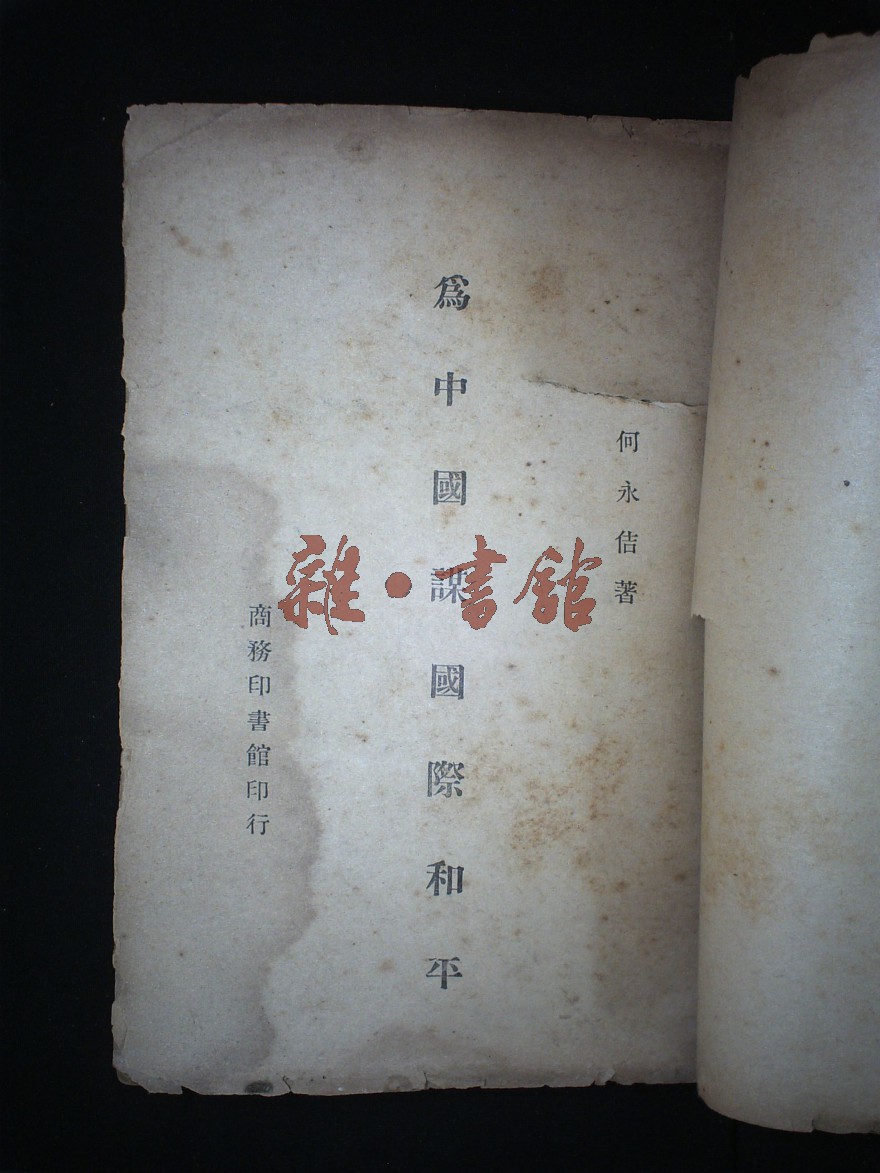 何永佶著
為中國謀國際和平
商務印書館印行
雜·書館